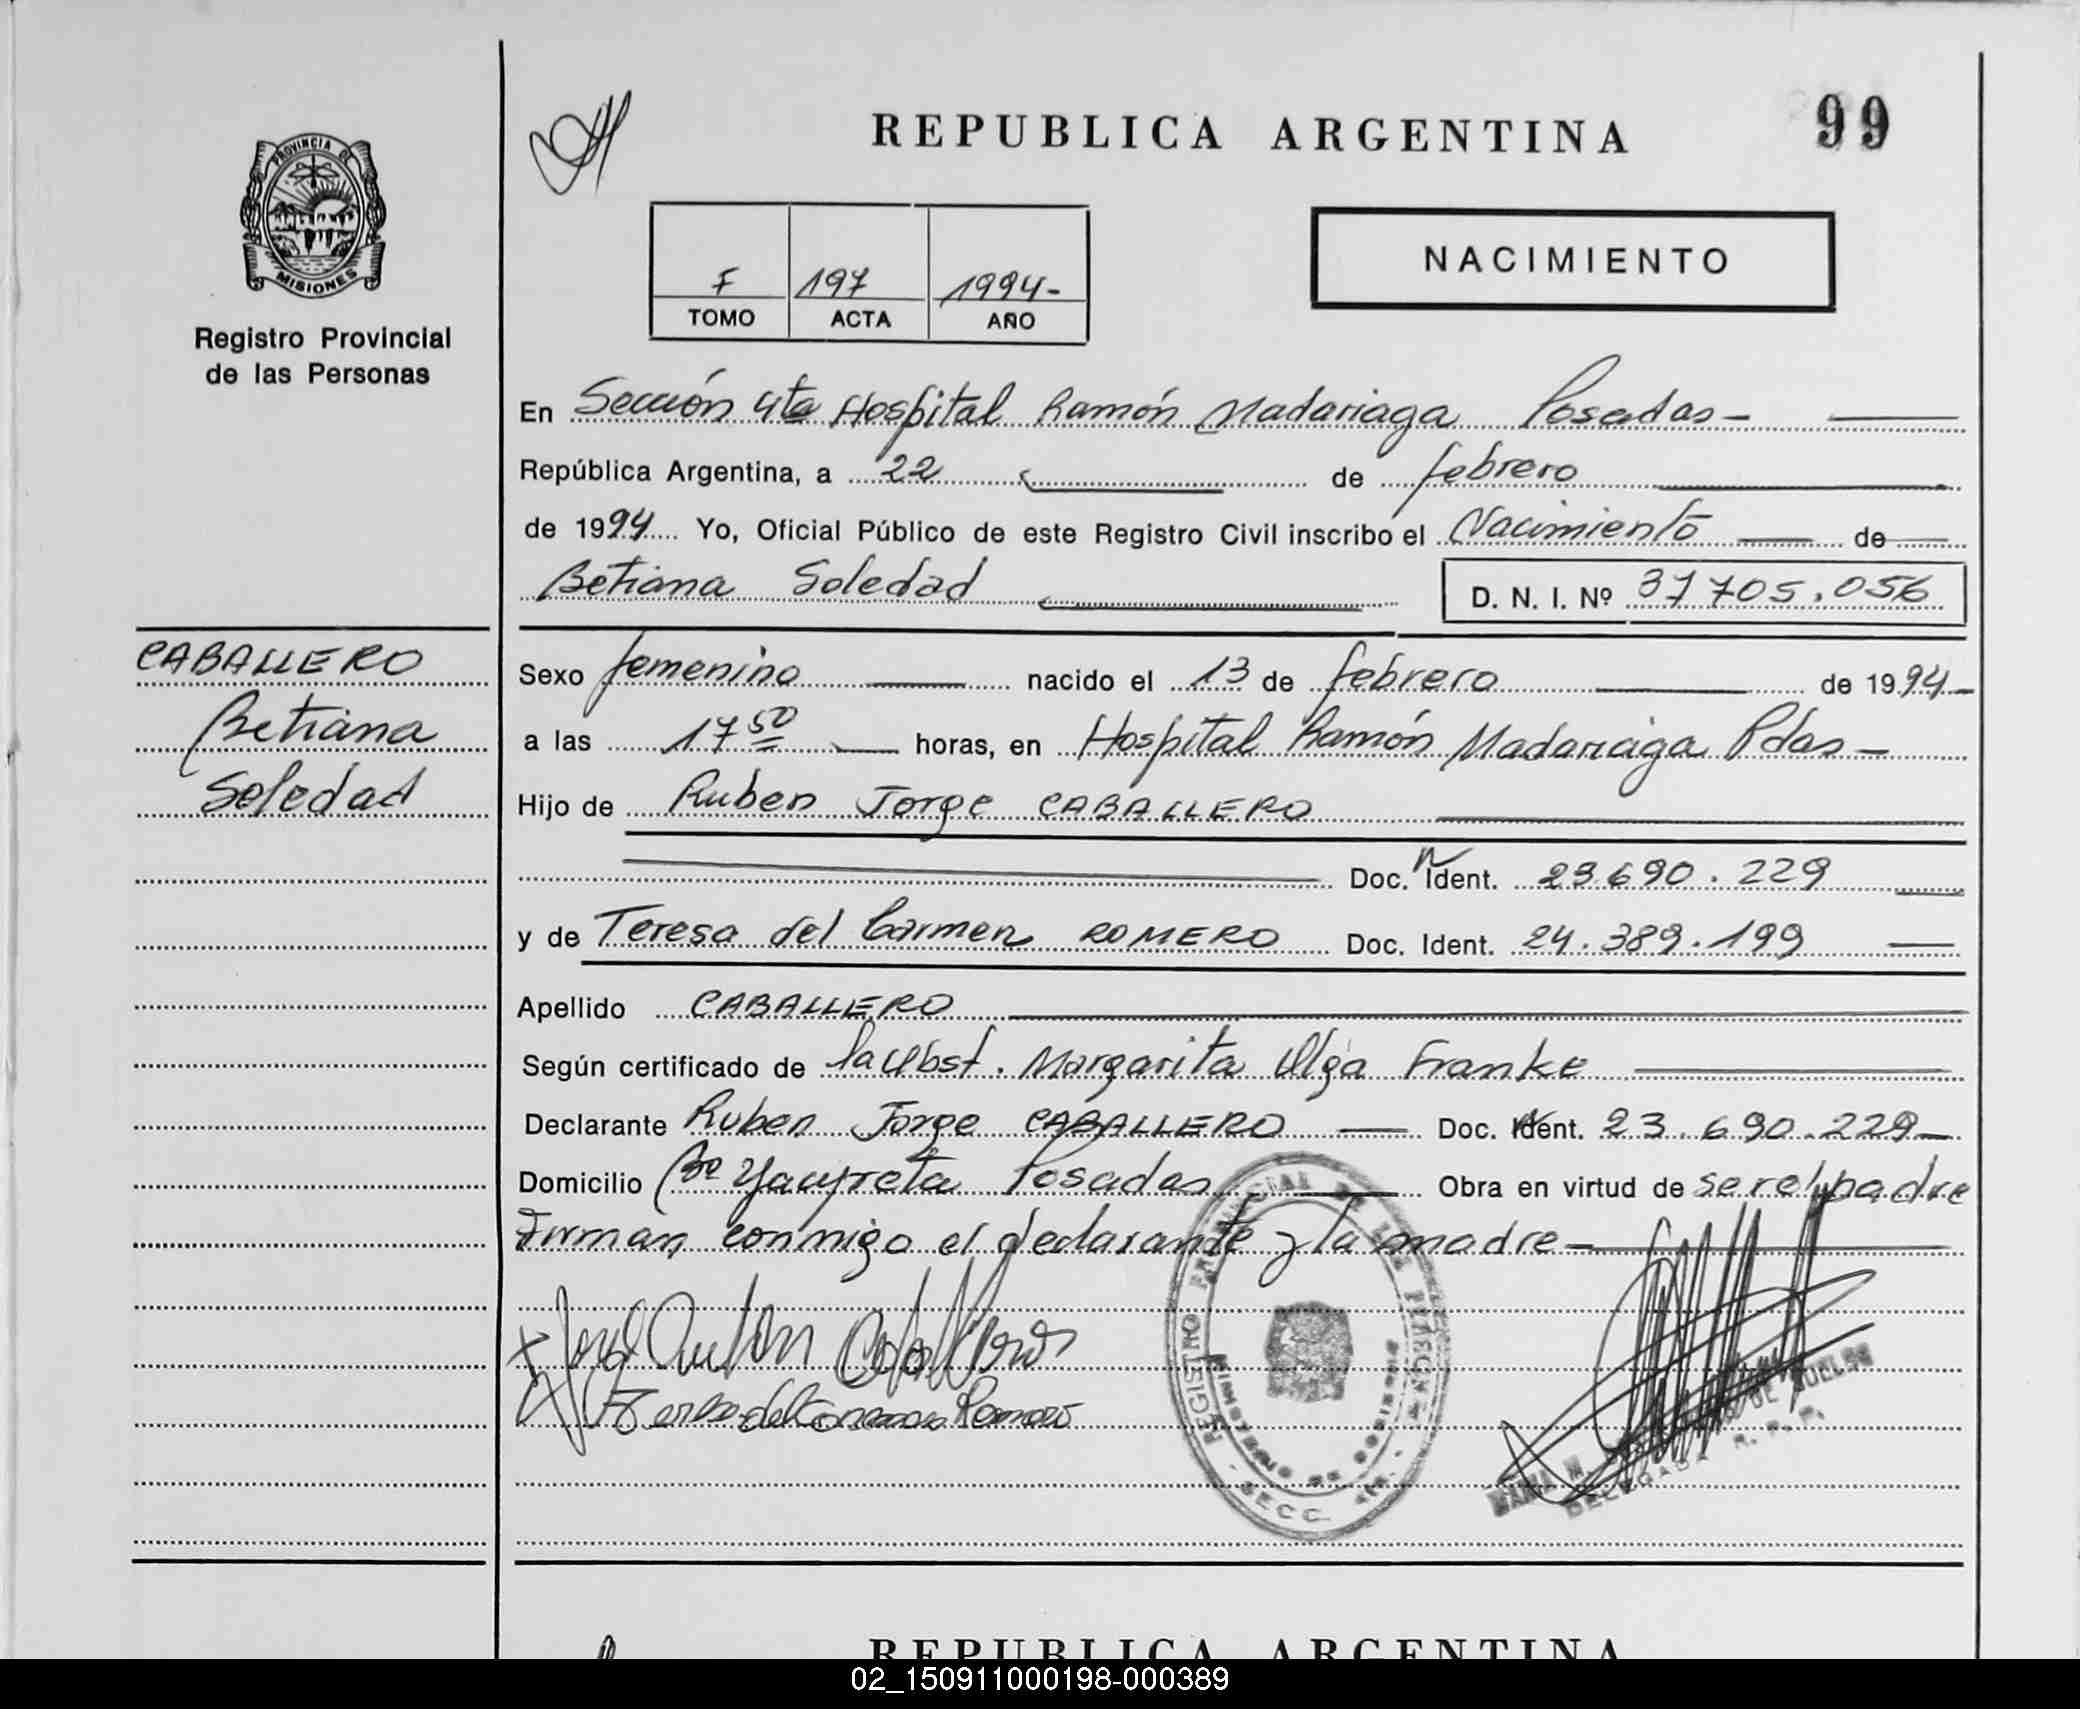 REPUBLICA ARGENTINA
99
PROVINCIA DE
MISIONES
Registro Provincial
de las Personas
F 197 1994-
TOMO ACTA AÑO
NACIMIENTO
En Sección 4ta Hospital Ramón Madariaga Posadas-
República Argentina, a 22 de febrero
de 1994 Yo, Oficial Público de este Registro Civil inscribo el Nacimiento de
Betiana Soledad D. N. I. Nº 37705.056
CABALLERO
Betiana
Soledad
Sexo femenino nacido el 13 de febrero de 1994-
a las 17 50 horas, en Hospital Ramón Madariaga Pdas-
Hijo de Ruben Jorge CABALLERO
Doc. Ident. 23.690.229
y de Teresa del Carmen ROMERO Doc. Ident. 24.389.199
Apellido CABALLERO
Según certificado de la Obst. Margarita Olga Franke
Declarante Ruben Jorge CABALLERO Doc. Ident. 23.690.229-
Domicilio Bº Yacyreta Posadas Obra en virtud de ser el padre
Firman conmigo el declarante y la madre-
REGISTRO PROVINCIAL DE LAS PERSONAS
MINISTERIO DE GOBIERNO
SECC. 4ta.
DELEGADA R. P. P.
REPUBLICA ARGENTINA
02_150911000198-000389